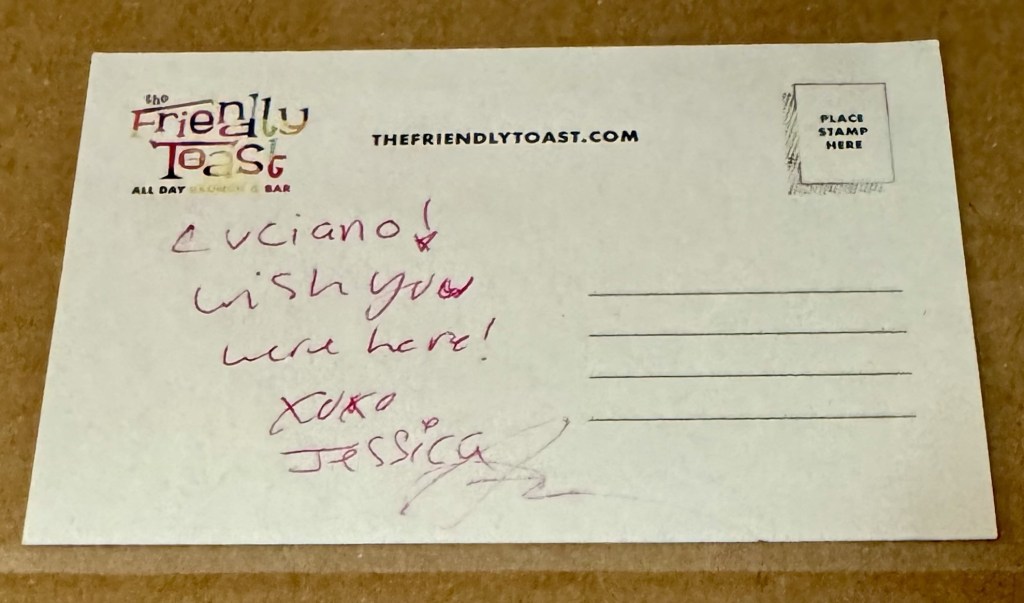 the
Friendly
Toast
ALL DAY BRUNCH & BAR
THEFRIENDLYTOAST.COM
PLACE
STAMP
HERE
Luciano!
wish you
were here!
xoxo
Jessica